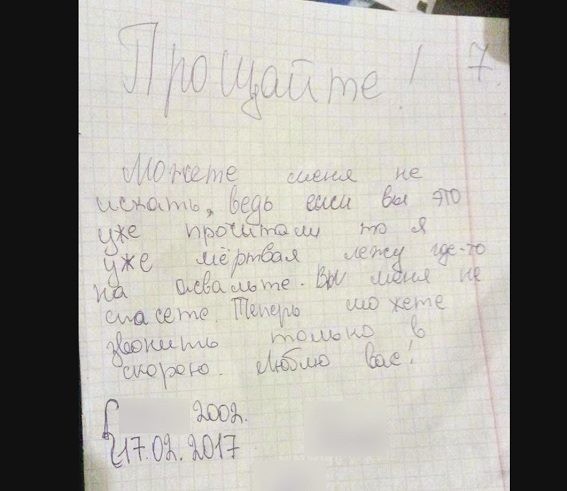 Прощайте! 7.
Можете меня не
искать, ведь если вы это
уже прочитали то я
уже мёртвая лежу где-то
на асвальте. Вы меня не
спасете. Теперь можете
звонить только в
скорою. Люблю вас!
2002.
17.02.2017